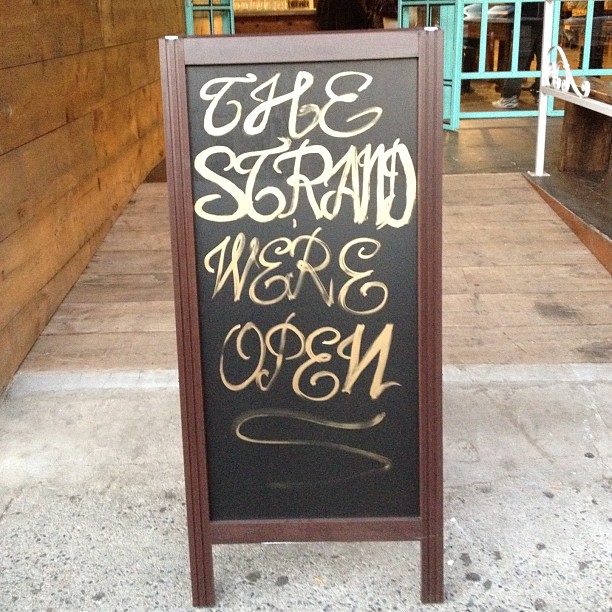 THE
STRAND
WE'RE
OPEN